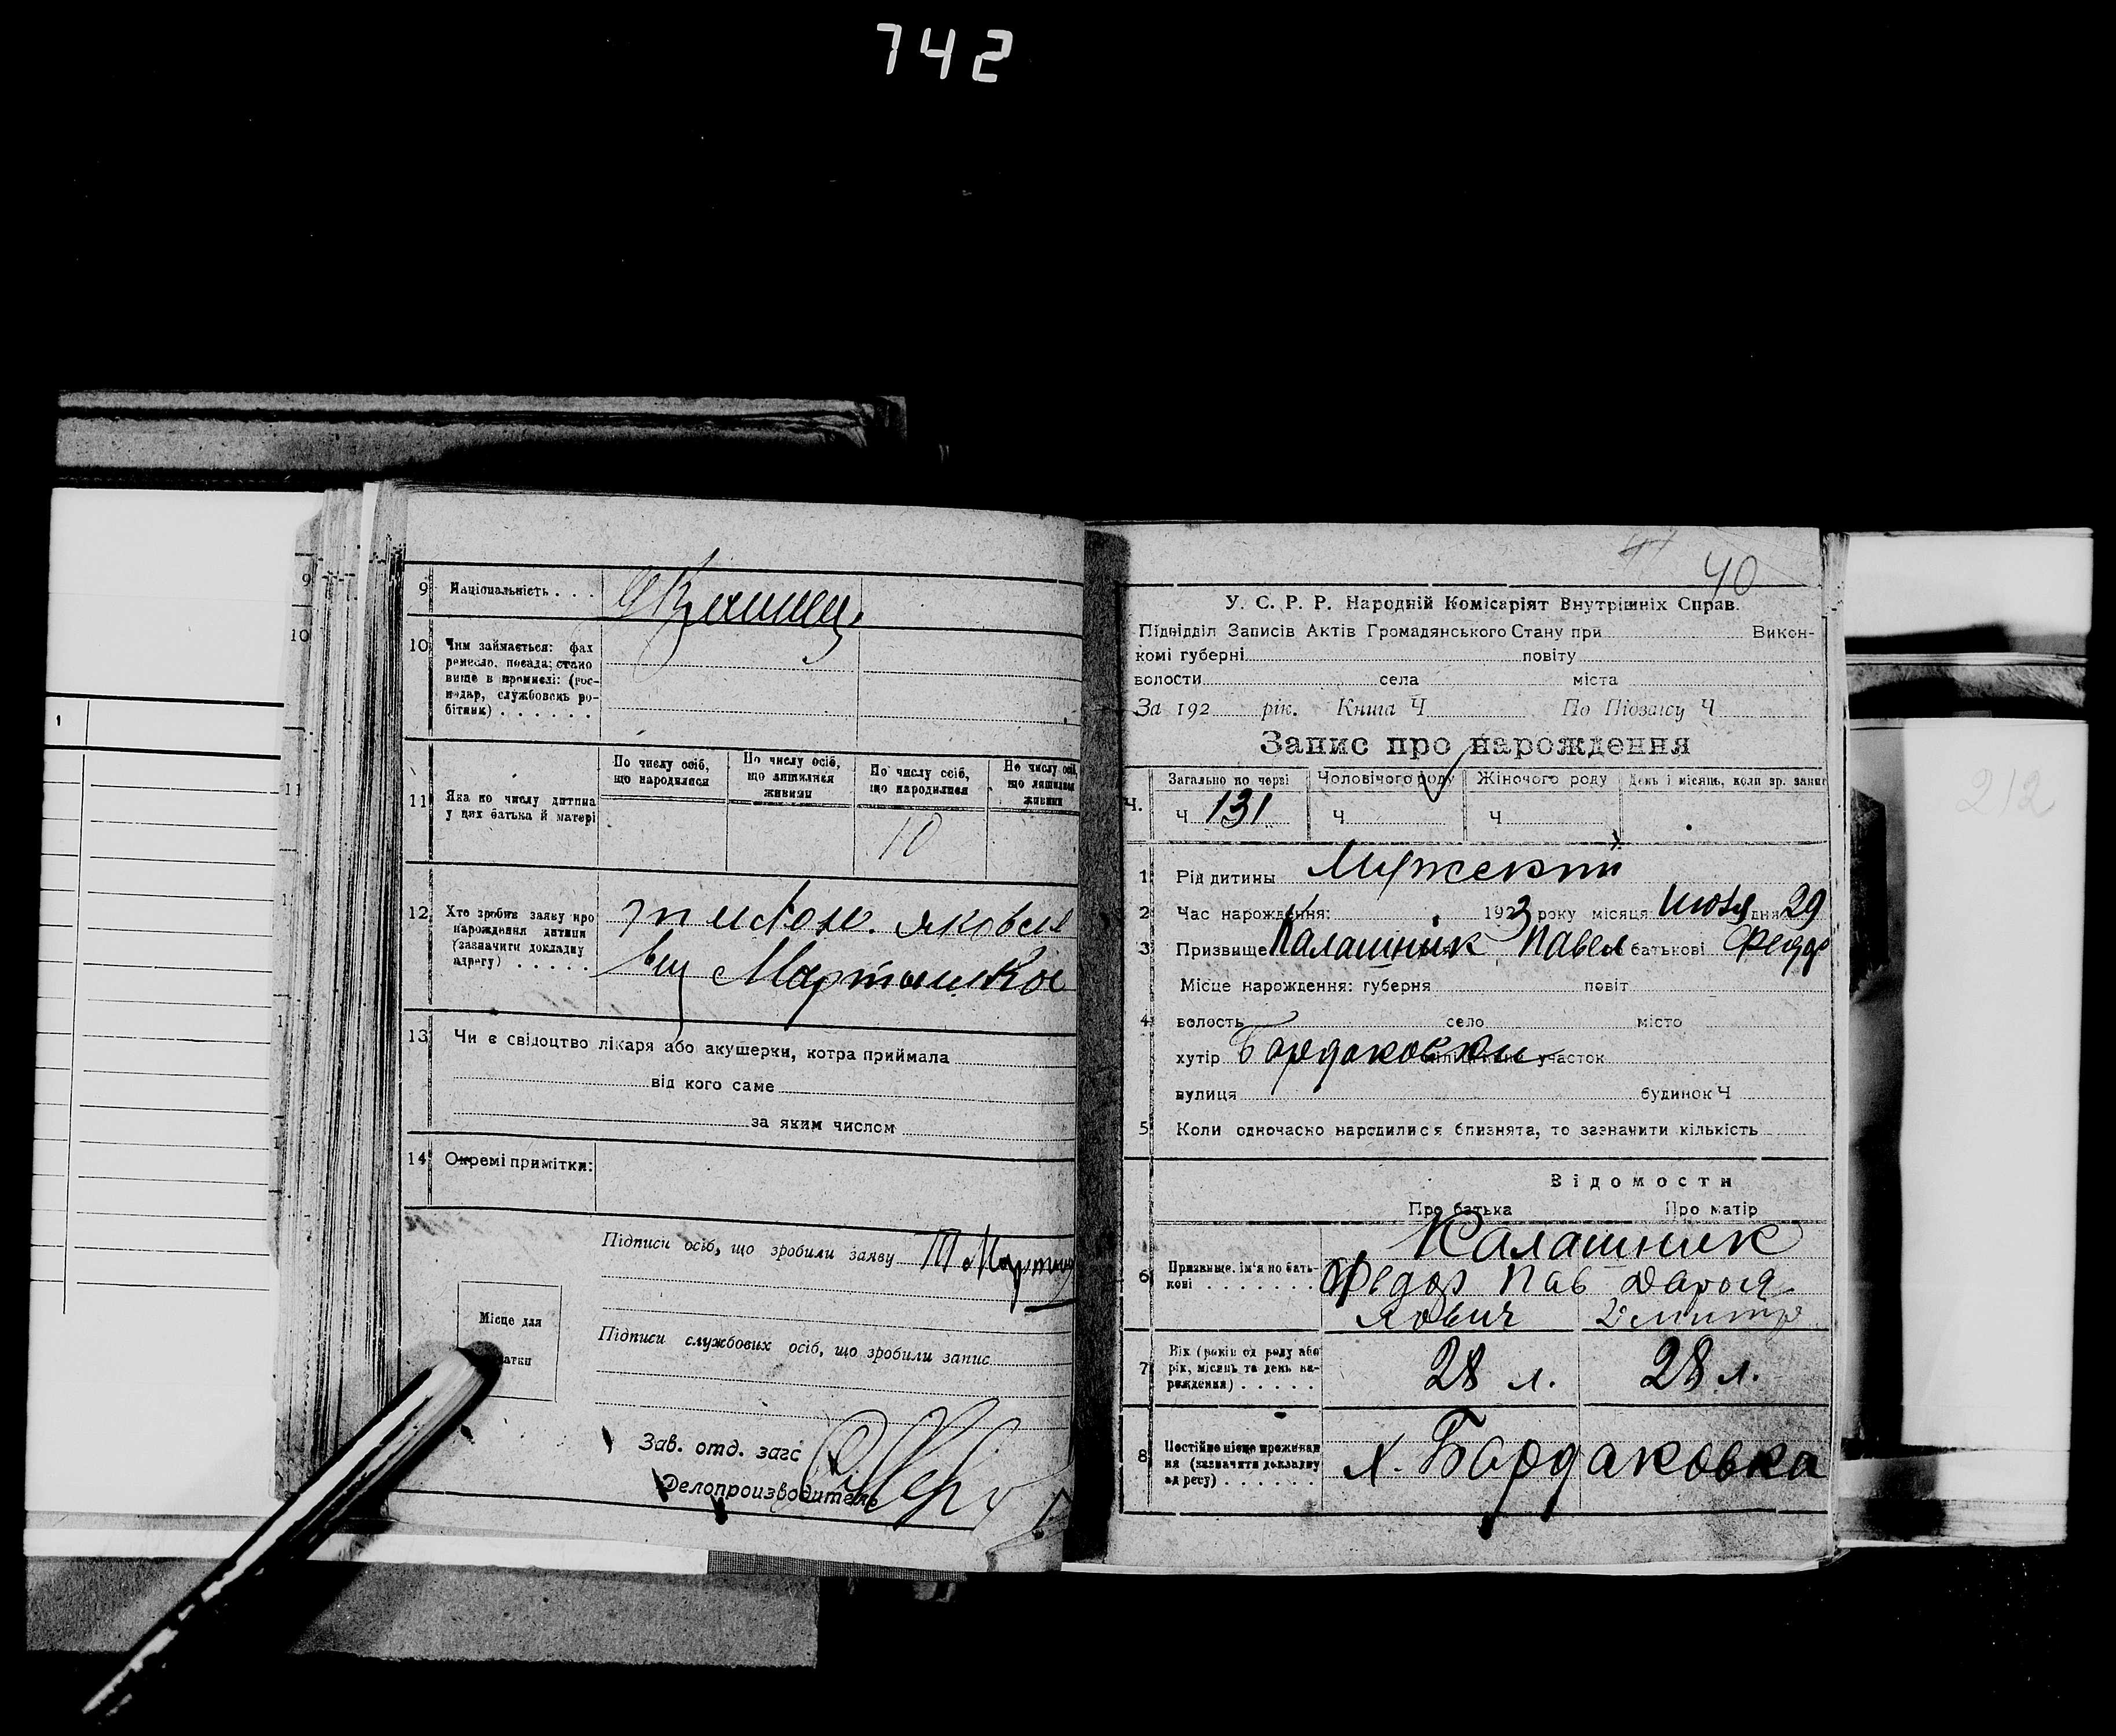 742
9 Національність . . . Украинец.
10 Чим займається: фах
ремесло, посада; стано
вище в промислі: (гос-
подар, службовець ро-
бітник) . . . . . .
11 Яка по числу дитина
у цих батька й матері
По числу осіб,
що народилися
По числу осіб,
що лишилися
живими
По числу осіб,
що народилися
По числу осіб,
що лишилися
живими
10
12 Хто зробив заяву про
народження дитини
(зазначити докладну
адресу) . . . . .
Тихон. Яковле
вич Мартыненко
13 Чи є свідоцтво лікаря або акушерки, котра приймала
від кого саме
за яким числом
14 Окремі примітки:
Підписи осіб, що зробили заяву
Місце для
Підписи службових осіб, що зробили запис
Зав. отд. загс
Делопроизводитель
40
У. С. Р. Р. Народній Комісаріят Внутрішніх Справ.
Підвідділ Записів Актів Громадянського Стану при Викон-
комі губерні повіту
волости села міста
За 192 рік. Книга Ч По Підзагсу Ч
Запис про нарождення
Загально по черзі Чоловічого роду Жіночого роду День і місяць, коли зр. запис
Ч. Ч 131 Ч Ч
1 Рід дитины Мужский
2 Час нарождення: 1923 року місяця Июля дня 29
3 Призвище Калашник Павел батькові Федор
Місце нарождення: губерня повіт
4 волость село місто
хутір Бардаковки участок
вулиця будинок Ч
5 Коли одночасно народилися близнята, то зазначити кількість
Відомости
Про батька Про матір
Калашник
6 Призвище, ім'я по бать-
кові . . . . . . .
Федор Пав
лович
Дарья
Дмитр
7 Вік (років од роду або
рік, місяць та день на-
рождення) . . . . .
28 л. 28 л.
8 Постійне місце проживан
ня (зазначити докладну
адресу) . . . . . .
х. Бардаковка
212